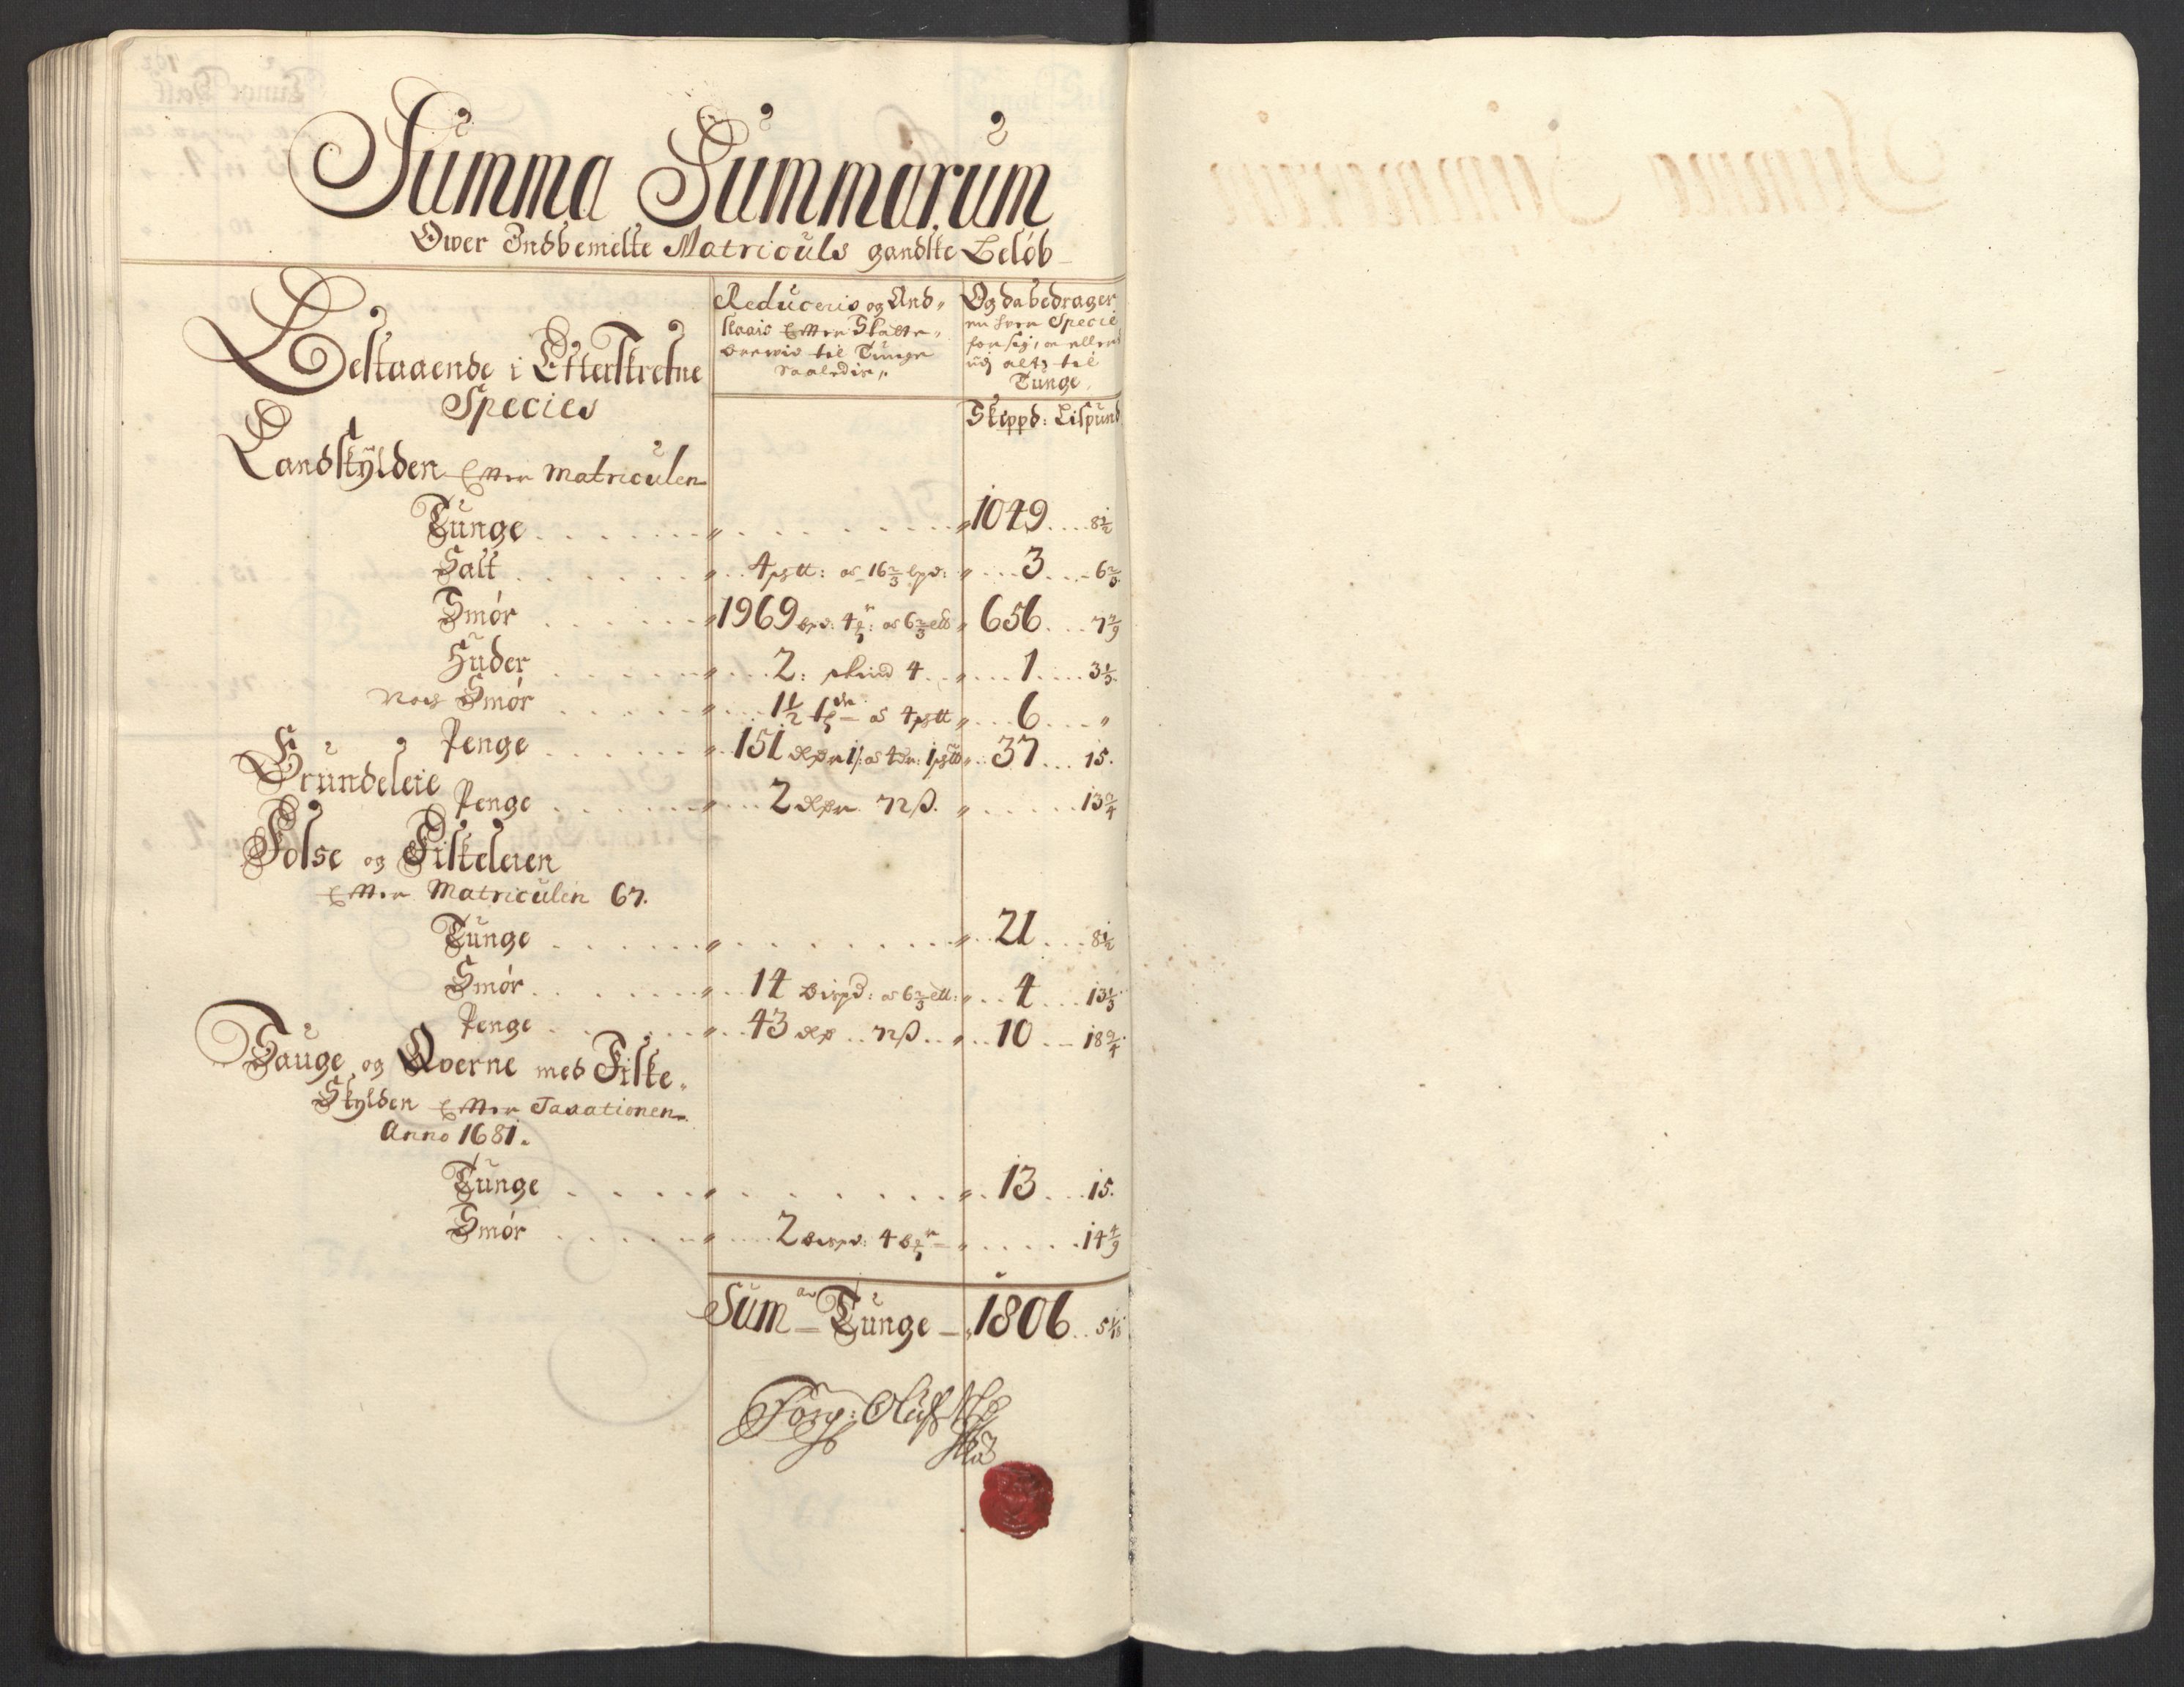 Summa Summarum
Ower Indbemelte Matriculs gandske Beløb
Bestaaende i Efterskrefne
Species
Reduceris og And„
slaais Efter Skatte„
brewis til Tunge
saaledis„
Og da bedrager
en hver Specie
for sig, 
udj alt til
Tunge,
Skippd: Lispund
Landskÿlden Efter Matriculen
Tunge . . . . . . „ . . . . . . . . „ 1049 . . . . 8½
Salt . . . . . . „ . . 4 pstt: as 16⅔ lpd: „ . . . 3 . . . 6⅔
Smør . . . . . . „ 1969 bpd: 4 : as 6⅔ „ 656 . . . 7 2/9
Huder . . . . . . „ . . . 2: skind 4 . . „ . . . 1 . . . 3⅓.
Smør . . . . . . „ . . . 1½ as 4 pstt „ . . . 6 . . . „
Penge . . . . . . „ . . 151 as 4 1 „ . . 37 . . . 15.
Grundeleie
Penge . . . . . . „ . . . 2 72 ß. „ . . . . . 13¾
Fosse og Fiskeleien
Efter Matriculen 67.
Tunge . . . . . . „ . . . . . . . . „ . . 21 . . . 8½
Smør . . . . . . „ . . 14 Bispd: as 6⅔ „ . . 4 . . . 13⅓
Penge . . . . . . „ . . 43 . . 72 ß . . „ . . 10 . . 18¾
Sauge og Qverne med Fiske„
Skylden Efter Taxationen
Anno 1681.
Tunge . . . . „ . . . . . . . „ . . 13 . . . 15.
Smør . . . . . „ . . . 2 Bispd: 4 „ . . . . . 14 4/9
Sum Tunge – 1806 . . 5